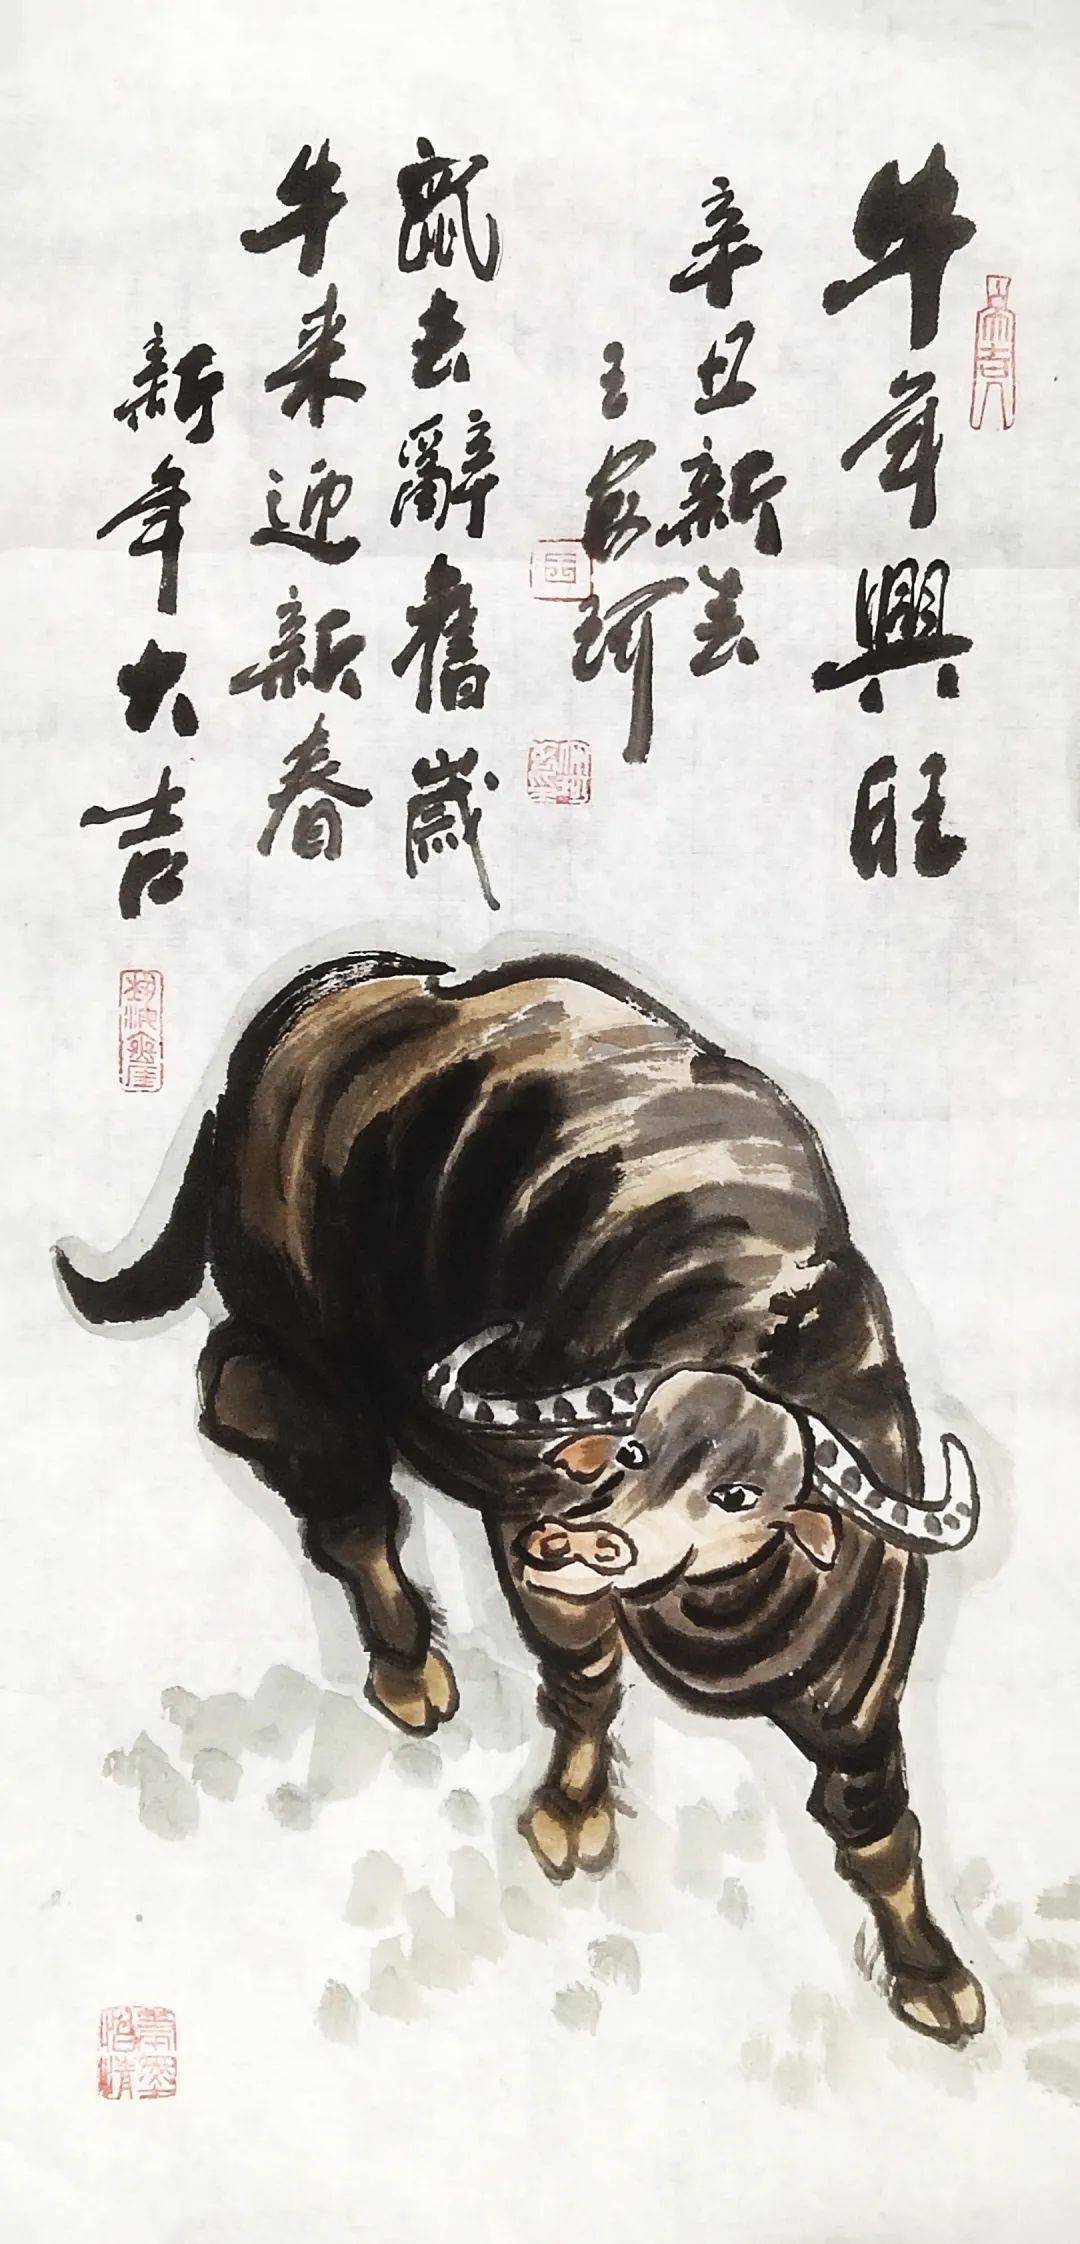 牛年興旺
辛丑新
王家珂
鼠去辭舊歲
牛来迎新春
新年大吉